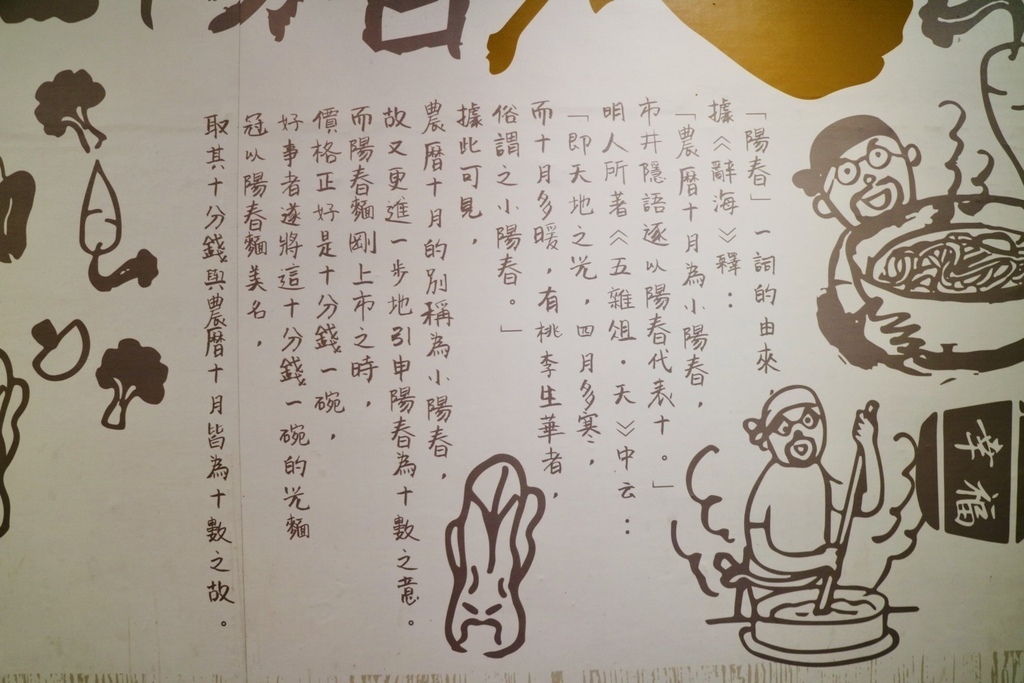 「陽春」一詞的由來
據《辭海》釋：
「農曆十月為小陽春，
市井隱語逐以陽春代表十。」
明人所著《五雜俎．天》中云：
「即天地之光，四月多寒，
而十月多暖，有桃李生華者，
俗謂之小陽春。」
據此可見，
農曆十月的別稱為小陽春，
故又更進一步地引申陽春為十數之意。
而陽春麵剛上市之時，
價格正好是十分錢一碗，
好事者遂將這十分錢一碗的光麵
冠以陽春麵美名，
取其十分錢與農曆十月皆為十數之故。
幸福